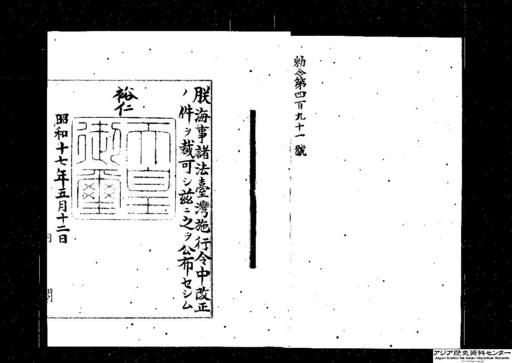 勅令第四百九十一號
朕海事諸法臺灣施行令中改正
ノ件ヲ裁可シ茲ニ之ヲ公布セシム
裕仁
天皇
御璽
昭和十七年五月十二日
アジア歴史資料センター
Japan Center for Asian Historical Records